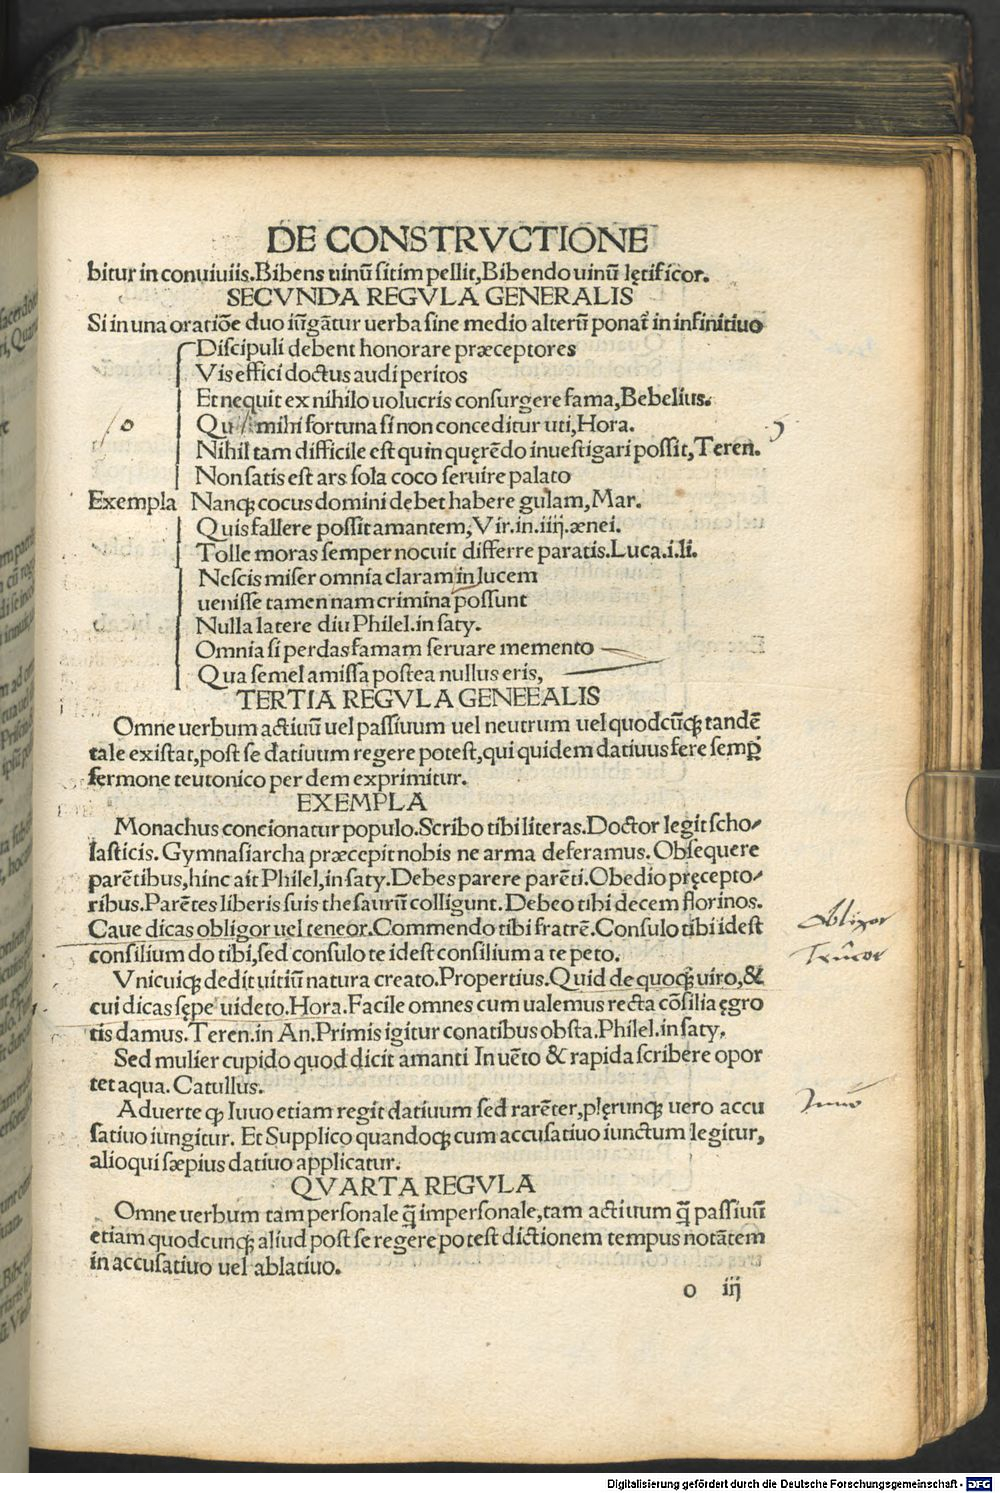 DE CONSTRVCTIONE
bitur in conuiuiis.Bibens uinū sitim pellit,Bibendo uinū lętificor.
SECVNDA REGVLA GENERALIS
Si in una oratiõe duo iũgãtur uerba sine medio alterũ ponat̃ in infinitiuo
Discipuli debent honorare præceptores
Vis effici doctus audi peritos
Et nequit ex nihilo uolucris consurgere fama,Bebelius.
mihi fortuna si non conceditur uti,Hora.
Nihil tam difficile est quin quęrẽdo inuestigari possit,Teren.
Non satis est ars sola coco seruire palato
Exempla Nanq; cocus domini debet habere gulam,Mar.
Quis fallere possit amantem,Vir.in.iiij.ænei.
Tolle moras semper nocuit differre paratis.Luca.i.li.
Nescis miser omnia claram in lucem
uenisse tamen nam crimina possunt
Nulla latere diu Philel.in saty.
Omnia si perdas famam seruare memento
Qua semel amissa postea nullus eris,
TERTIA REGVLA GENEEALIS
Omne uerbum actiuū uel passiuum uel neutrum uel quodcūq; tandē
tale existat,post se datiuum regere potest,qui quidem datiuus fere semp̱
sermone teutonico per dem exprimitur.
EXEMPLA
Monachus concionatur populo.Scribo tibi literas.Doctor legit scho/
lasticis. Gymnasiarcha præcepit nobis ne arma deferamus. Obsequere
parẽtibus,hinc ait Philel,in saty.Debes parere parẽti.Obedio pręcepto/
ribus.Parẽtes liberis suis thesaurū colligunt.Debeo tibi decem florinos.
Caue dicas obligor uel teneor.Commendo tibi fratrẽ.Consulo tibi idest
consilium do tibi,sed consulo te idest consilium a te peto.
Vnicuiq; dedit uitiũ natura creato.Propertius.Quid de quoq; uiro,&
cui dicas sępe uideto.Hora.Facile omnes cum ualemus recta cõsilia ęgro
tis damus. Teren.in An.Primis igitur conatibus obsta.Philel.in saty.
Sed mulier cupido quod dicit amanti In uẽto & rapida scribere opor
tet aqua. Catullus.
Aduerte ꝙ Iuuo etiam regit datiuum sed rarẽter,plęrunq; uero accu
satiuo iungitur. Et Supplico quandoq; cum accusatiuo iunctum legitur,
alioqui sæpius datiuo applicatur.
QVARTA REGVLA
Omne uerbum tam personale q̃ impersonale,tam actiuum q̃ passiuū
etiam quodcunq; aliud post se regere potest dictionem tempus notãtem
in accusatiuo uel ablatiuo.
o iij
Obligor
Iuuo
Digitalisierung gefördert durch die Deutsche Forschungsgemeinschaft - DFG